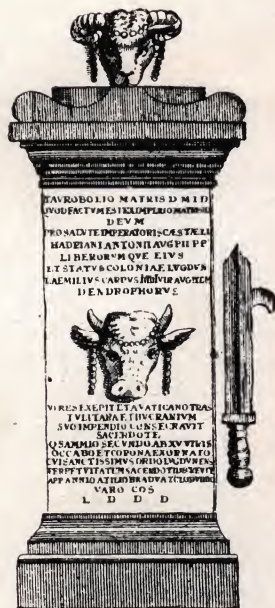 TAVROBOLIO MATRIS D M ID
QVOD FACTVM EST EX IMPERIO MATRIS D
DEVM
PRO SALVTE IMPERATORIS CAES T AELI
HADRIANI ANTONII AVG PII PP
LIBERORVM QVE EIVS
ET STATVS COLONIAE LVGDVN
L AEMILIVS CARPVS IIIIIIVIR AVG ITEM
DENDROPHORVS
VIRES EXEPIT ET A VATICANO TRAS
TVLIT ARA ET BVCRANIVM
SVO IMPENDIO CONSECRAVIT
SACERDOTE
Q SAMMIO SECVNDO AB XV VIRIS
OCCABO ET CORONA EXORNATO
CVI SANCTISSIMVS ORDO LVGDVNENS
PERPETVITATEM SACERDOTI DECREVIT
APP ANNIO ATILIO BRADVA T CLOD VIBIO
VARO COS
L D D D